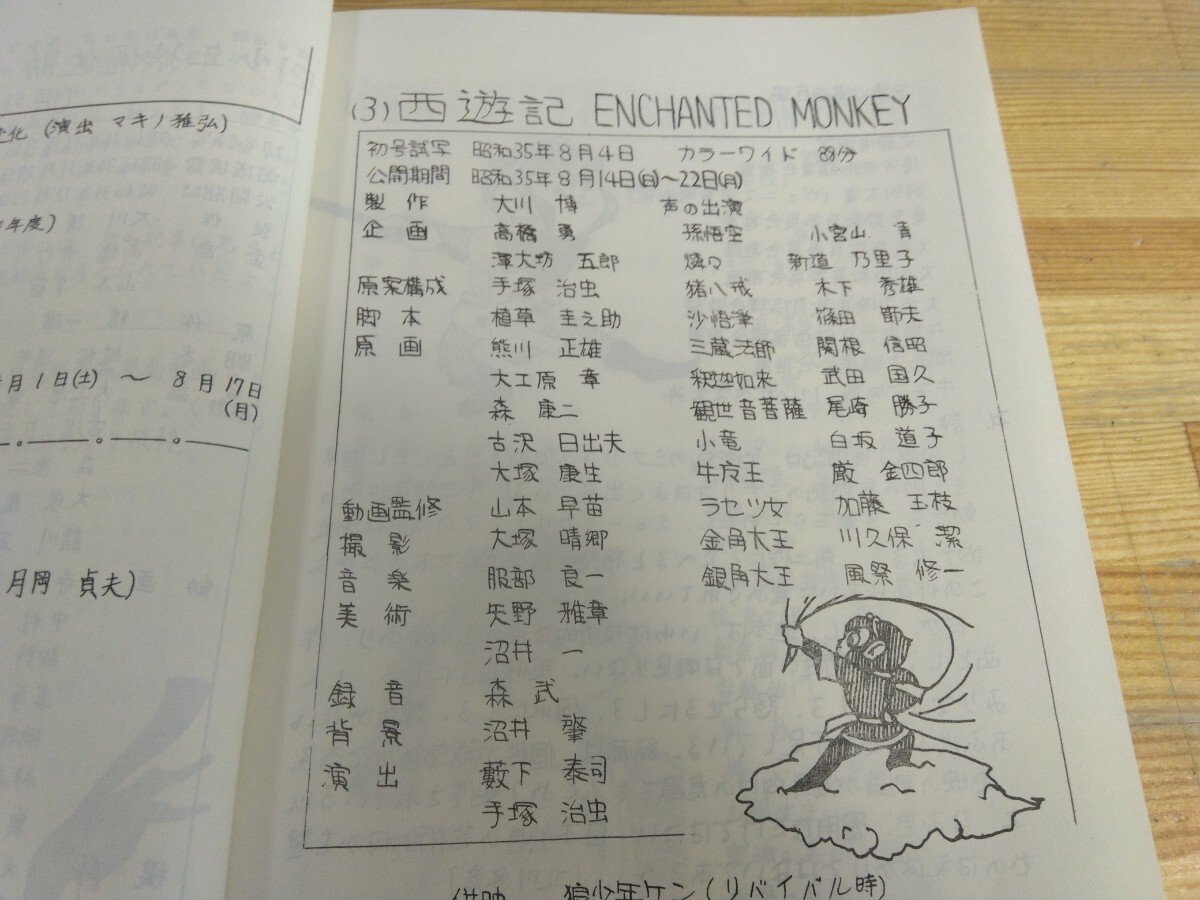 化 (演出 マキノ雅弘)
年度)
月1日(土) ～ 8月17日
(月)
月岡 貞夫)
(3) 西遊記 ENCHANTED MONKEY
初号試写 昭和35年8月4日 カラーワイド 分
公開期間 昭和35年8月14日(日)～22日(月)
製作 大川 博 声の出演
企画 高橋 勇 孫悟空 小宮山 清
澤大坊 五郎 燐々 新道 乃里子
原案構成 手塚 治虫 猪八戒 木下 秀雄
脚本 植草 圭之助 沙悟浄 篠田 節夫
原画 熊川 正雄 三蔵法師 関根 信昭
大工原 章 釈迦如来 武田 国久
森 康二 観世音菩薩 尾崎 勝子
古沢 日出夫 小竜 白坂 道子
大塚 康生 牛魔王 巌 金四郎
動画監修 山本 早苗 ラセツ女 加藤 玉枝
撮影 大塚 晴郷 金角大王 川久保 潔
音楽 服部 良一 銀角大王 風祭 修一
美術 矢野 雅章
沼井 一
録音 森 武
背景 沼井 肇
演出 藪下 泰司
手塚 治虫
併映 狼少年ケン(リバイバル時)